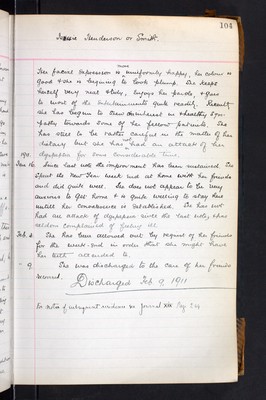 104
Jessie Henderson or Smith.
Her facial expression is uniformly happy, her colour is
good & she is beginning to look plump. She keeps
herself very neat & tidy, enjoys her food, & goes
to most of the entertainments quite readily. Recently
she has begun to show an interest in & healthy sym-
pathy towards some of her fellow patients. She
has still to be rather careful in the matter of her
dietary but she has not had an attack of her
dyspepsia for some considerable time.
1911.
Jan. Since last note the improvement has been sustained. She
spent the New Year week end at home with her friends
and did quite well. She does not appear to be very
anxious to get home & is quite willing to stay here
until her convalescence is established. She has not
had an attack of dyspepsia since the last note, & has
seldom complained of feeling ill.
Feb. 3. She has been allowed out by request of her friends
for the week-end in order that she might have
her teeth attended to.
" 9. She was discharged to the care of her friends
recovered.
Discharged Feb 9. 1911
For notes of subsequent residence see Journal XIX Page